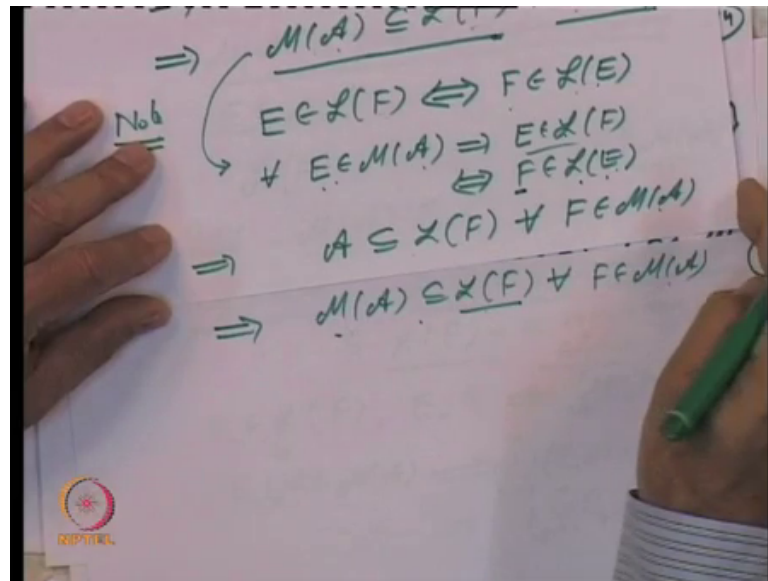 ⇒ M(A) ⊆ L(F)
4
E ∈ L(F) ⇔ F ∈ L(E)
Note
∀ E ∈ M(A) ⇒ E ∈ L(F)
⇔ F ∈ L(E)
⇒ A ⊆ L(F) ∀ F ∈ M(A)
⇒ M(A) ⊆ L(F) ∀ F ∈ M(A)
NPTEL